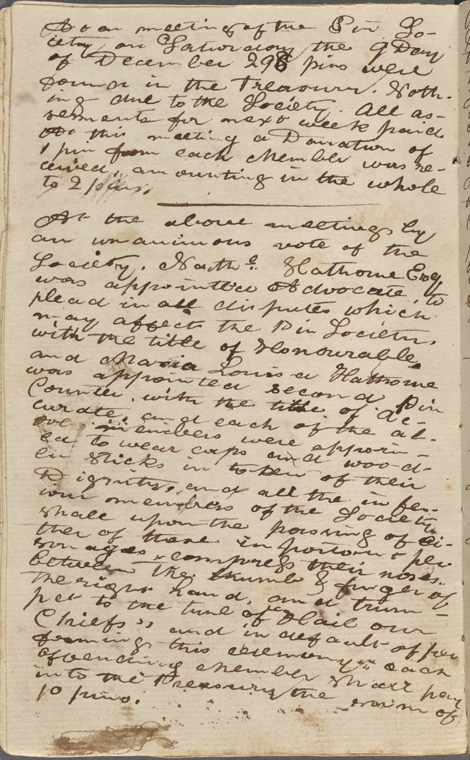 At a meeting of the Pin So-
ciety on Saturday the 9 Day
of December 298 pins were
found in the Treasury. Noth-
ing due to the Society. All as-
sesments for next week paid
At this meeting a Donation of
1 pin from each Member was re-
ceived, amounting in the whole
to 2 pins.
At the above meeting, by
an unanimous vote of the
Society, Nath.l Hathorne Esq
was appointed Advocate, to
plead in all disputes which
may affect the Pin Society,
with the title of Honourable,
and Maria Louisa Hathorne
was appointed second Pin
Counter, with the title of Ac-
curate, and each of the ab-
ove members were appoin-
ted to wear caps and wood-
en sticks in token of their
Dignity, and all the infer-
iour members of the Society
shall upon the passing of ei-
ther of these important per
sonages compress their noses
between the thumb & finger of
the right hand, and trum-
pet to the tune of "Hail our
Chiefs", and in default of per
forming this ceremony each
offending Member shall pay
into the Treasury the sum of
10 pins.